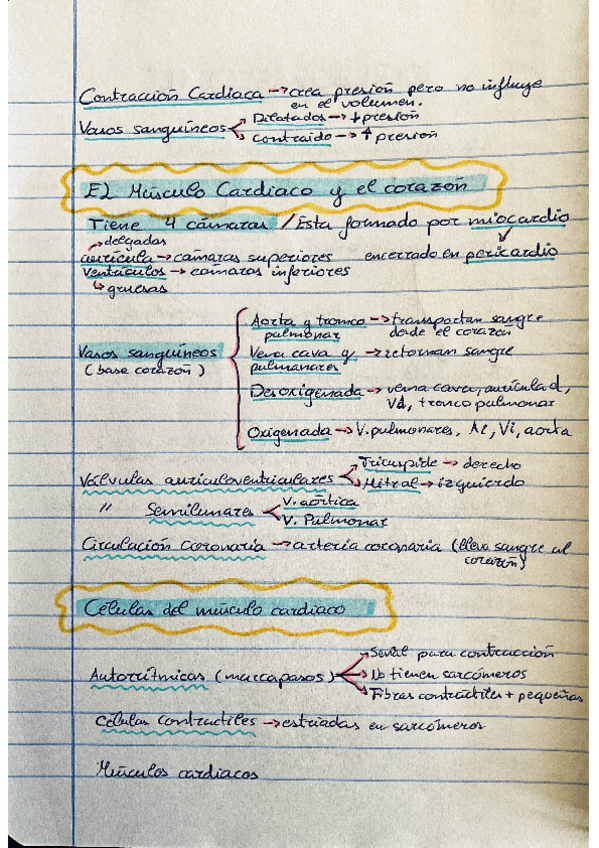 Contracción Cardiaca → crea presión pero no influye
en el volumen.
Vasos sanguíneos Dilatados → ↓ presión
contraido → ↑ presión
El Músculo Cardiaco y el corazón
Tiene 4 cámaras / Esta formado por miocardio
→ delgadas
aurícula → cámaras superiores encerrado en pericardio
Ventrículos → cámaras inferiores
↳ gruesas
Vasos sanguíneos
(base corazón)
Aorta y tronco → transportan sangre
pulmonar desde el corazón
Vena cava y → retornan sangre
pulmonares
Desoxigenada → vena cava, aurícula d,
Vd, tronco pulmonar
Oxigenada → V. pulmonares, Ai, Vi, aorta
Válvulas auriculoventriculares → Tricuspide → derecho
→ Mitral → izquierdo
" Semilunares V. aórtica
V. Pulmonar
Circulación Coronaria → arteria coronaria (lleva sangre al
corazón)
Células del músculo cardiaco
Autorrítmicas (marcapasos) → Señal para contracción
→ No tienen sarcómeros
→ Fibras contráctiles + pequeñas
Células contractiles → estriadas en sarcómeros
Músculos cardiacos